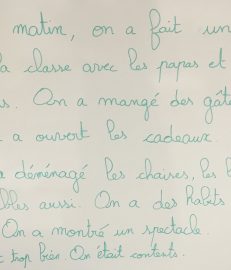 matin, on a fait un
a classe avec les papas et
s. On a mangé des gât
a ouvert les cadeaux.
a déménagé les chaises, les
bles aussi. On a des habits
On a montré un spectacle.
trop bien. On était contents.